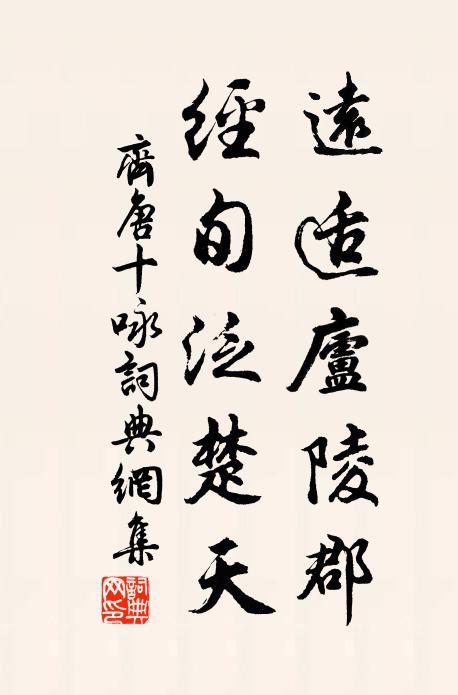 遠适廬陵郡
經旬泛楚天
齊唐十咏詞典網集
詞典網印